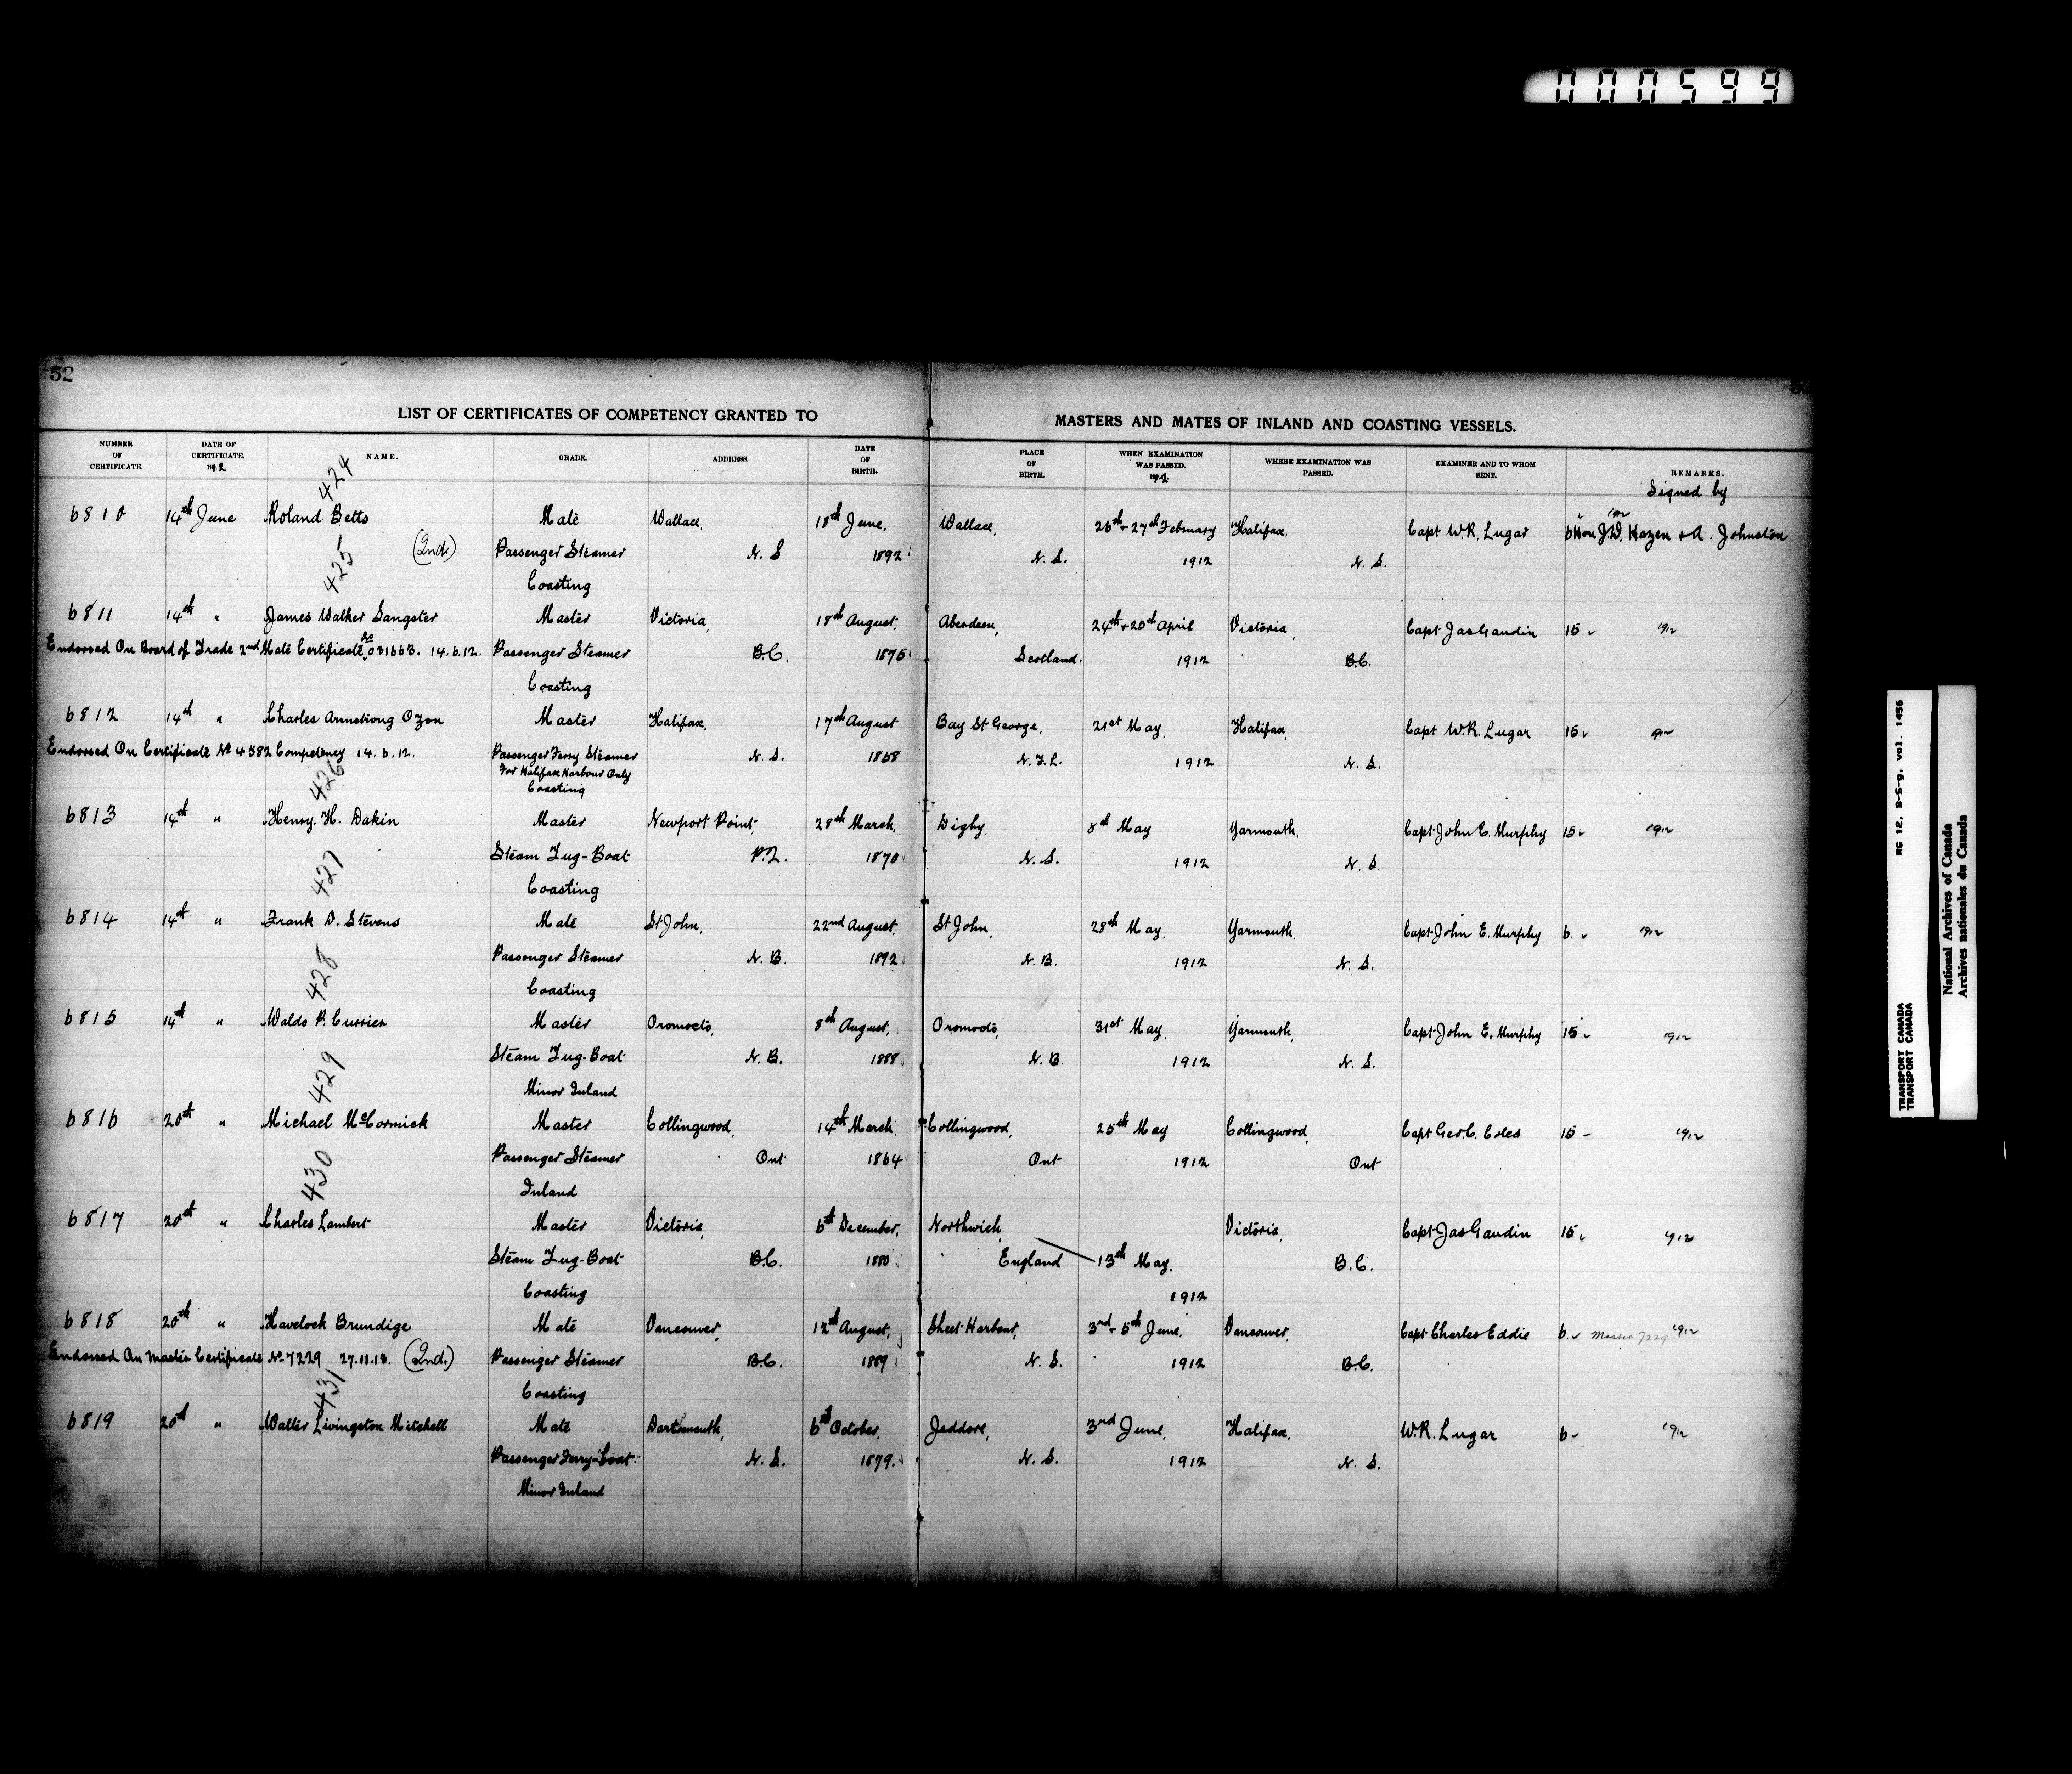 000599
52
LIST OF CERTIFICATES OF COMPETENCY GRANTED TO MASTERS AND MATES OF INLAND AND COASTING VESSELS.
NUMBER OF CERTIFICATE. DATE OF CERTIFICATE. 1912 NAME. GRADE. ADDRESS. DATE OF BIRTH. PLACE OF BIRTH. WHEN EXAMINATION WAS PASSED. 1912 WHERE EXAMINATION WAS PASSED. EXAMINER AND TO WHOM SENT. REMARKS.
Signed by
424
6810 14th June Roland Betts Mate Wallace, 18th June, Wallace, 26th + 27th February Halifax, Capt W.R. Lugar 6 Hon J.D. Hazen + A. Johnston
(2nd) Passenger Steamer N.S 1892 N.S. 1912 N.S.
425 Coasting
6811 14th " James Walker Sangster Master Victoria, 18th August, Aberdeen, 24th + 25th April Victoria, Capt Jas Gaudin 15 1912
Endorsed On Board of Trade 2nd Mate Certificate No 031663. 14.6.12. Passenger Steamer B.C. 1875 Scotland. 1912 B.C.
Coasting
6812 14th " Charles Armstrong Ozon Master Halifax, 17th August Bay St George, 21st May, Halifax, Capt W.R. Lugar 15 1912
Endorsed On Certificate No 4582 Competency 14.6.12. Passenger Ferry Steamer N.S. 1868 N.F.L. 1912 N.S.
For Halifax Harbour Only
426 Coasting
6813 14th " Henry. H. Dakin Master Newport Point, 28th March, Digby, 8th May Yarmouth, Capt John E. Murphy 15 1912
Steam Tug-Boat 1870 N.S. 1912 N.S.
427 Coasting
6814 14th " Frank D. Stevens Mate St John, 22nd August, St John, 28th May, Yarmouth, Capt John E. Murphy 6 1912
Passenger Steamer N.B. 1892 N.B. 1912 N.S.
428 Coasting
6815 14th " Waldo P. Currier Master Oromocto, 8th August, Oromocto, 31st May, Yarmouth, Capt John E. Murphy 15 1912
Steam Tug-Boat N.B. 1888 N.B. 1912 N.S.
429 Minor Inland
6816 20th " Michael McCormick Master Collingwood, 14th March, Collingwood, 25th May Collingwood, Capt Geo. C. Coles 15 1912
Passenger Steamer Ont 1864 Ont 1912 Ont
430 Inland
6817 20th " Charles Lambert Master Victoria, 6th December, Northwich, Victoria, Capt Jas Gaudin 15 1912
Steam Tug-Boat B.C. 1880 England 13th May, B.C.
Coasting 1912
6818 20th " Havelock Brundige Mate Vancouver, 12th August, Sheet Harbour, 3rd + 5th June, Vancouver, Capt Charles Eddie 6 Master 7229 1912
Endorsed On Master Certificate No 7229 27.11.13. (2nd) Passenger Steamer B.C. 1889 N.S. 1912 B.C.
431 Coasting
6819 20th " Walter Livingston Mitchell Mate Dartmouth, 6th October, Jeddore, 3rd June, Halifax, W.R. Lugar 6 1912
Passenger Ferry-Boat N.S. 1879. N.S. 1912 N.S.
Minor Inland
RG 12, B-5-g, vol. 1456
TRANSPORT CANADA
TRANSPORT CANADA
National Archives of Canada
Archives nationales du Canada